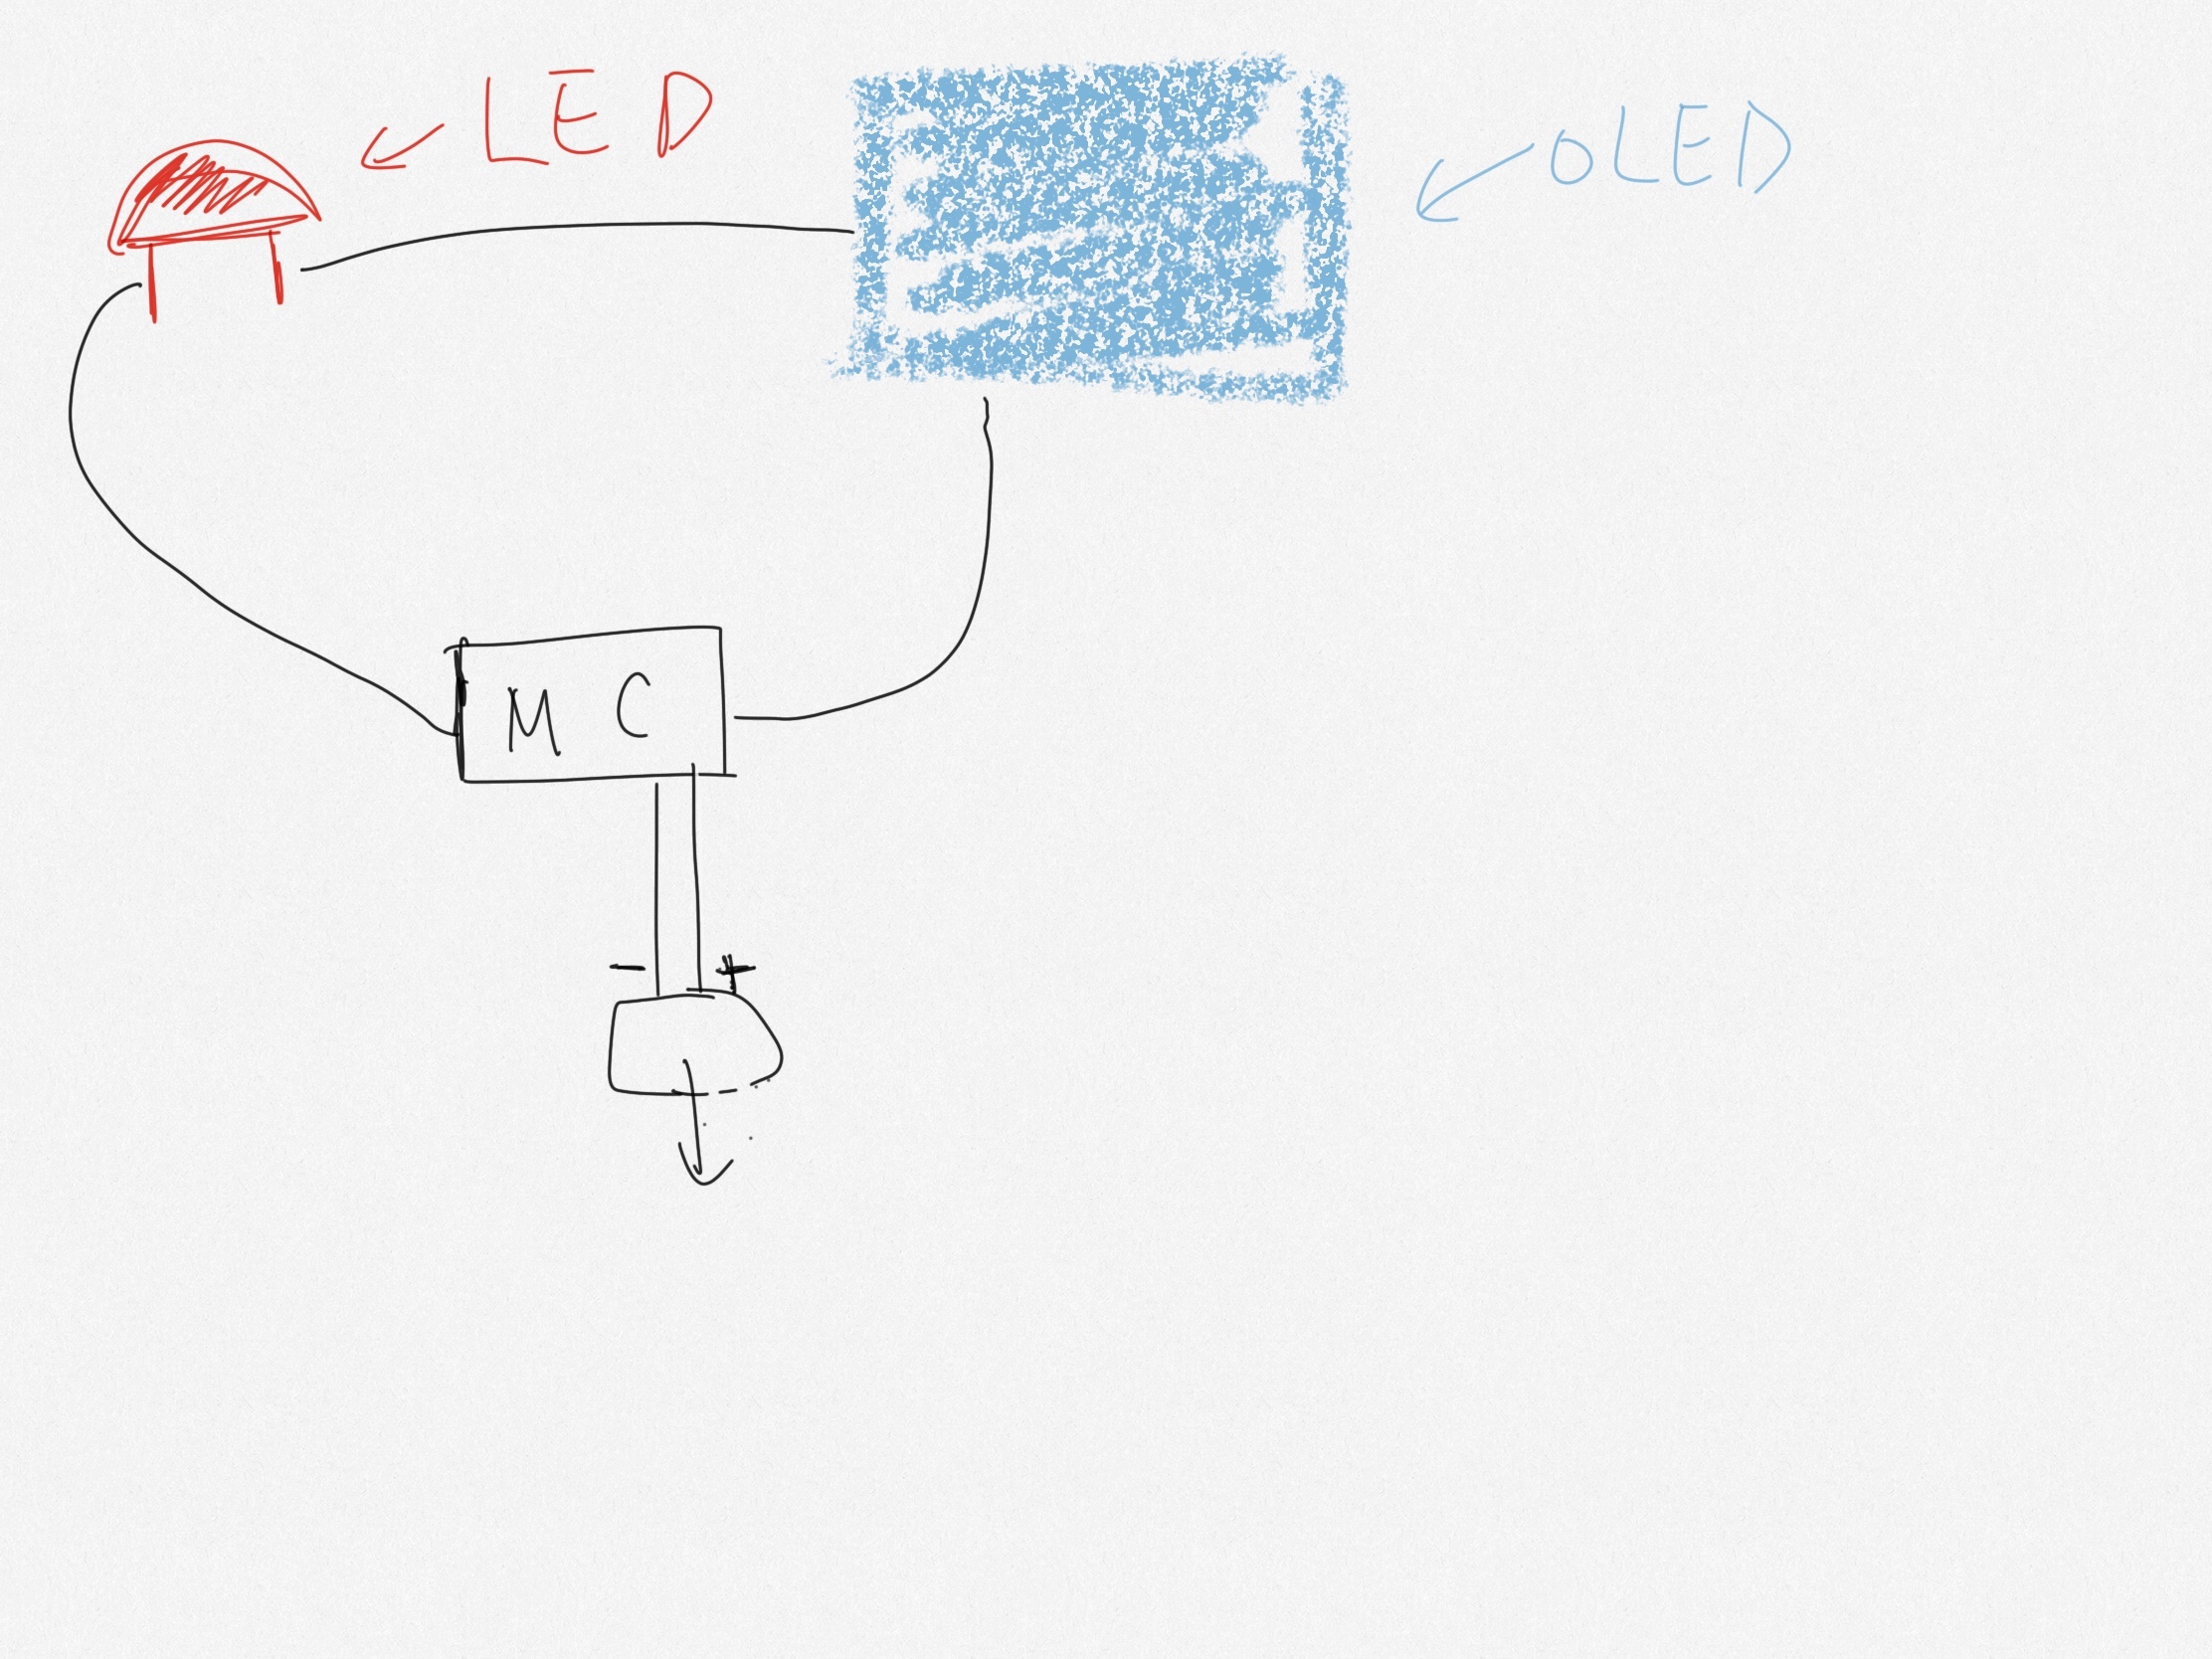 LED
OLED
M C
- +